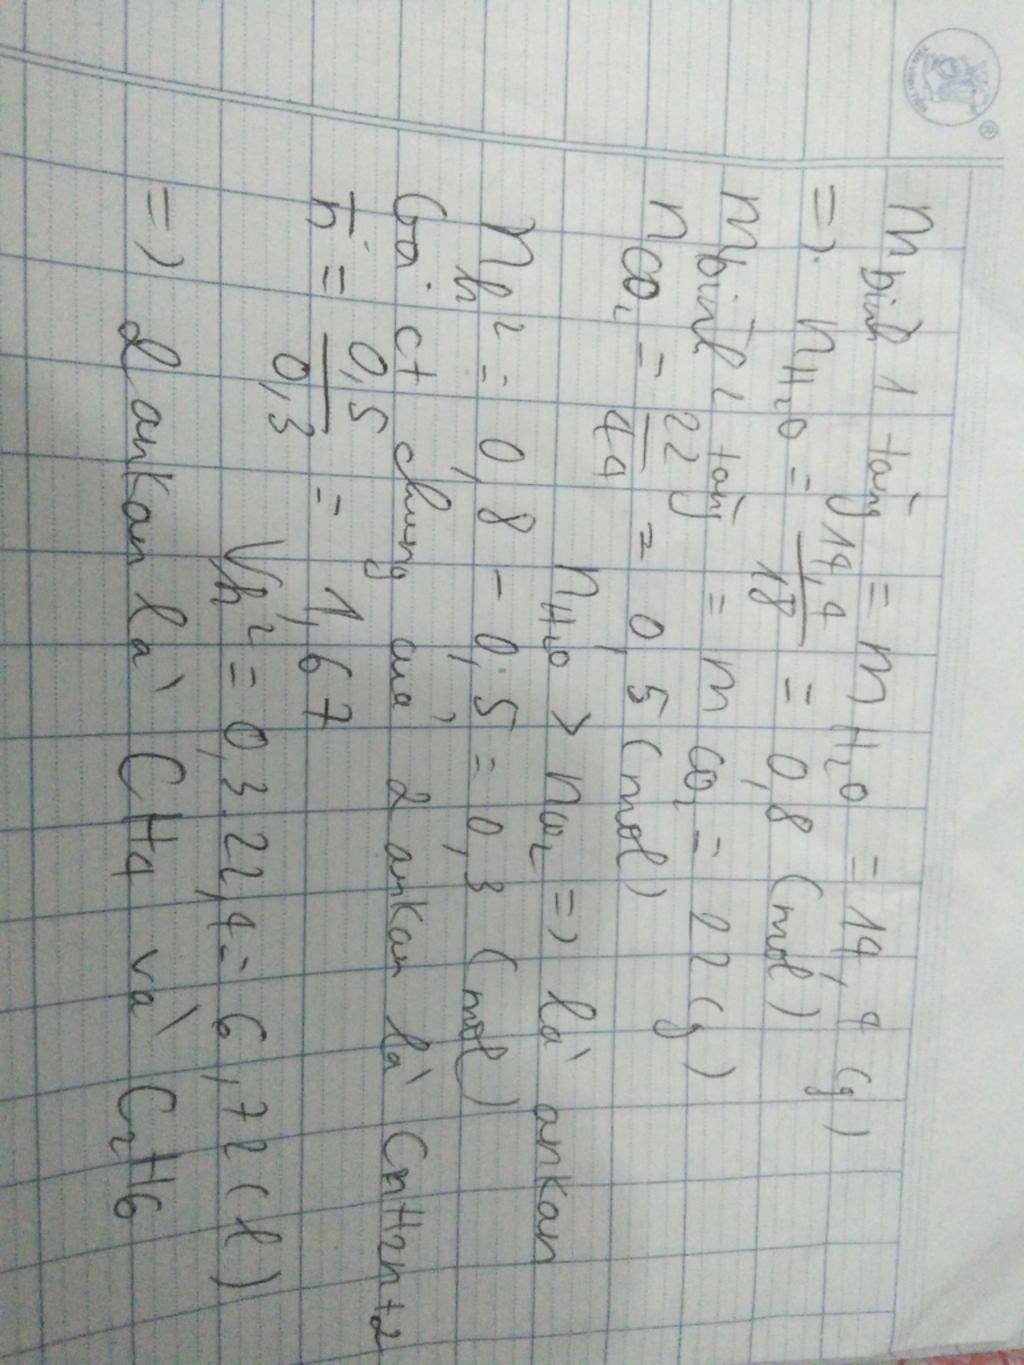 m bình 1 tăng = m H₂O = 14,4 (g)
=> n H₂O = 14,4/18 = 0,8 (mol)
m bình 2 tăng = m CO₂ = 22 (g)
n CO₂ = 22/44 = 0,5 (mol)
n H₂O > n CO₂ => là ankan
n h² = 0,8 - 0,5 = 0,3 (mol)
Gọi ct chung của 2 ankan là CnH2n+2
n̅ = 0,5/0,3 = 1,67
Vh² = 0,3.22,4 = 6,72 (l)
=> 2 ankan là CH4 và C₂H6